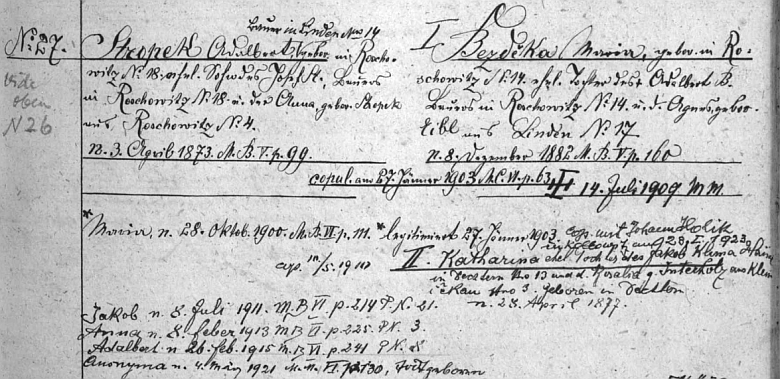 Bauer in Linden Nro 14
No. 27. Stropek Adalbert, gebor. in Roscho-
witz N. 18. ehel. Sohn des Josef St., Bauers
in Roschowitz N. 18 u. der Anna, gebor. Stropek
aus Roschowitz N. 4.
n. 3. April 1873. M. B. V. p. 99.
vide
oben
N 26
I Bezděka Maria, gebor. in Ro-
schowitz N. 14. ehel. Tochter des Adalbert B.
Bauers in Roschowitz N. 14 u. d. Agnes, gebor.
Eibl aus Linden N. 17
n. 8. Dezember 1882 M. B. V. p. 160
copul. am 27. Jänner 1903 M. C. VI. p. 63. 14. Juli 1909 M. M.
* Maria, n. 28. Oktob. 1900. M. B. VI p. 111. * legitimiert 27. Jänner 1903. cop. mit Johann Holik
am 23. I. 1923
cop. /5. 1910 II. Katharina ehel. Tochter des Jakob Klima
in Nro 13 und d. Rosalia g. aus Klein
Nro 3. Geboren in
n. 23. April 1877.
Jakob n. 8. Juli 1911. M B VI. p. 214 P. N. 21.
Anna n. 8. Feber 1913 M B VI. p. 225. P N. 3.
Adalbert n 26. feb. 1915 M. B VI p. 241 P N. 8
Anonyma n. 4. März 1921 M. N. VI. p. 130, Totgeboren